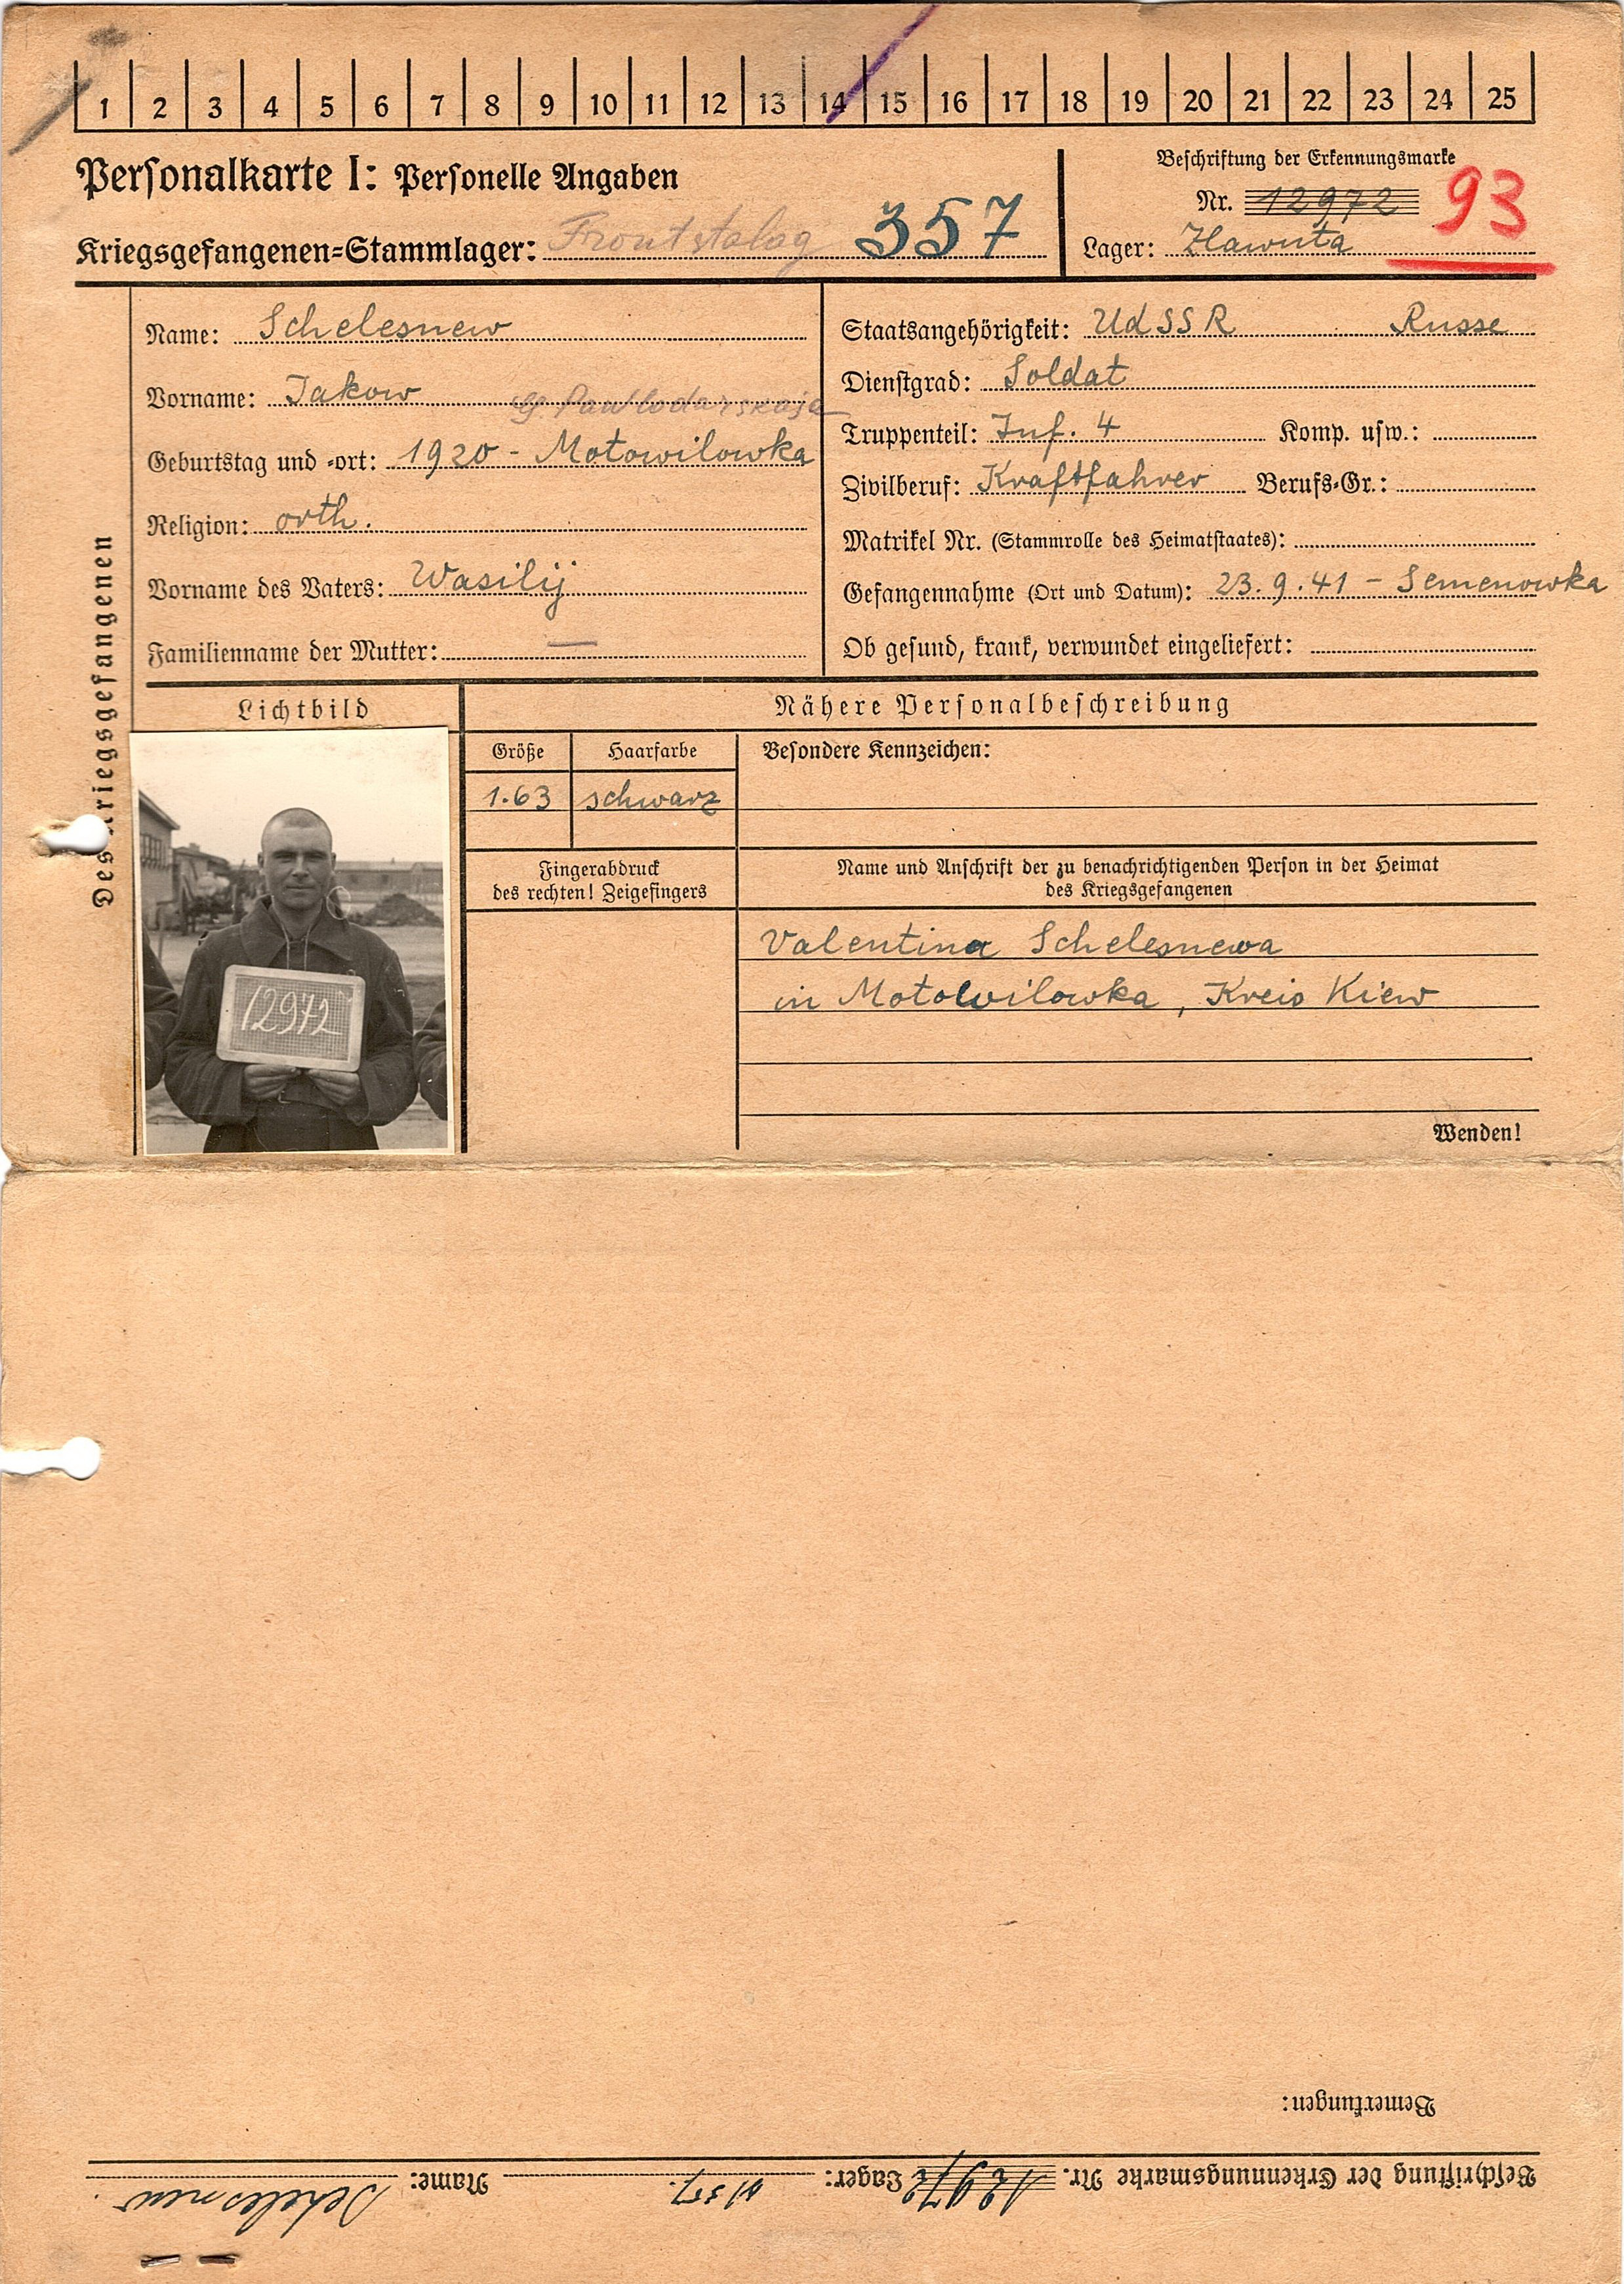 1 2 3 4 5 6 7 8 9 10 11 12 13 14 15 16 17 18 19 20 21 22 23 24 25
Personalkarte I: Personelle Angaben
Kriegsgefangenen=Stammlager: Frontstalag 357
Beschriftung der Erkennungsmarke
Nr. 12972 93
Lager:
Des Kriegsgefangenen
Name: Schelesnew
Vorname: Jakow
G. Pawlodarskaja
Geburtstag und =ort: 1920 - Motowilowka
Religion: orth.
Vorname des Vaters: Wasilij
Familienname der Mutter: —
Staatsangehörigkeit: UdSSR Russe
Dienstgrad: Soldat
Truppenteil: Inf. 4 Komp. usw.:
Zivilberuf: Kraftfahrer Berufs=Gr.:
Matrikel Nr. (Stammrolle des Heimatstaates):
Gefangennahme (Ort und Datum): 23.9.41 - Semenowka
Ob gesund, krank, verwundet eingeliefert:
Lichtbild
12972
Nähere Personalbeschreibung
Größe Haarfarbe
1.63 schwarz
Besondere Kennzeichen:
Fingerabdruck
des rechten! Zeigefingers
Name und Anschrift der zu benachrichtigenden Person in der Heimat
des Kriegsgefangenen
Valentina Schelesnewa
in Motowilowka, Kreis Kiew
Wenden!
Bemerkungen:
Beschriftung der Erkennungsmarke Nr. 12972 Lager: 357. Name: Schelesnew.